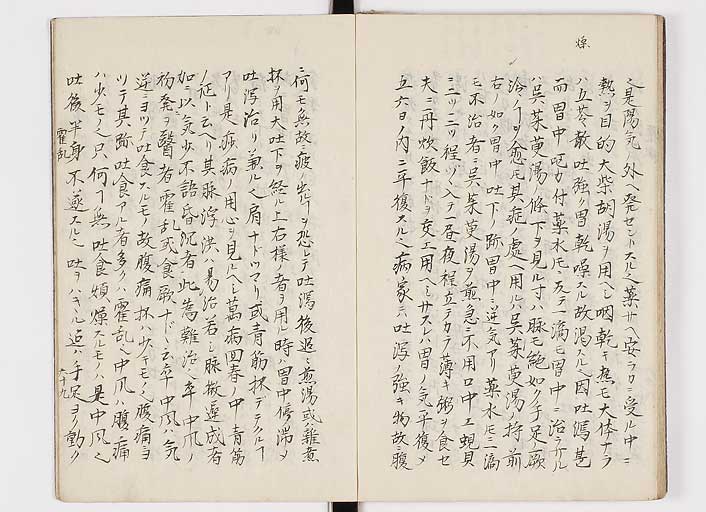 燥
之是陽気ノ外ヘ発セントスル之薬サヘ安ラカニ受ル中ニ
熱ヲ目的大柴胡湯ヲ用ヘシ咽乾キ熱モ大体ナラ
ハ五苓散吐強ク胃乾噪スル故渇スル之因吐瀉甚
而胃中呃力付薬水モ反テ一滴モ胃中ニ治ラサル
ハ呉茱萸湯ノ條下ヲ見ル寸ハ脉モ絶如ク手足ノ厥
冷ノ愈モ其症ノ處ヘ用ルハ呉茱萸湯持前
右ノ如ク胃中吐下ノ跡胃中ニ逆気アリ薬水モ一滴
モ不治者ニ呉茱萸湯ヲ煎急ニ不用口中エ蜆貝
ニ二ツ三ツ程ツヽ入テ一昼夜程立テカラ薄キ粥ヲ食セ
夫ニ二舟炊飯ナドヲ交エ用ヘシサスレハ胃ノ気平復メ
五六日ノ内ニ平復スル之病家ニ吐瀉ノ強キ物故腹
ニ何モ無故疲出ルヲ恐レテ吐瀉後追々煎湯或ハ雑煮
抔ヲ用大吐下ヲ経ル上右様ノ者ヲ用ル時ハ胃中停滞メ
吐瀉治リ兼ル之肩ナドツマリ或青筋抔テテクルフ
アリ是痧病ノ用心ヲ見ルヘシ萬病回春ノ中青筋
ノ証ト云ヘリ其脉浮洪ハ易治若シ脉微遅成者
如シ以気少不語昏沉者此為難治ト卒中風ノ
初発ヲ醫者霍乱或食厥ナドヽ云卒中風ハ気
逆ニヨツテ吐食スルモノ故腹痛抔ハ少キモノ之腹痛ヨ
ツテ其跡吐食アル者多クハ霍乱之中風ハ腹痛
ハ少モノ之只何フ無吐食煩燥スルモノハ是中風之
吐後半身不遂スル之吐ヲハキシ迠ハ手足ヨク動ク
霍乱
六十九